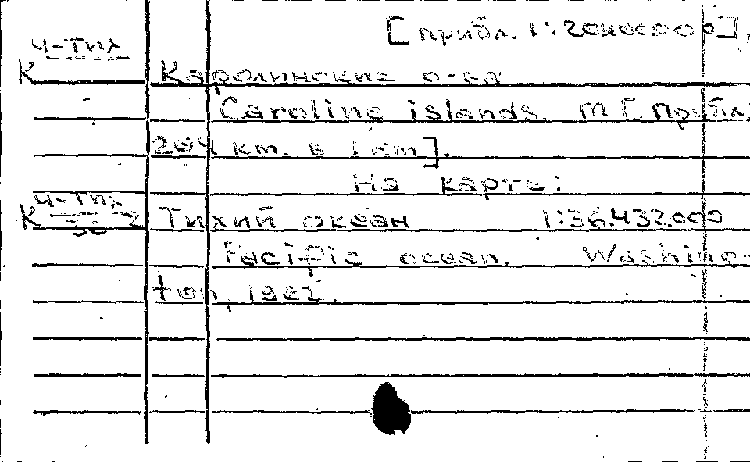 [прибл. 1:20400000],
Ч-Тих
К Каролинские о-ва
Caroline islands. М [прибл.
204 km. в 1 dm].
На карте:
Ч-Тих
К Тихий океан 1:36.432.000
Pacific ocean. Washing-
ton,